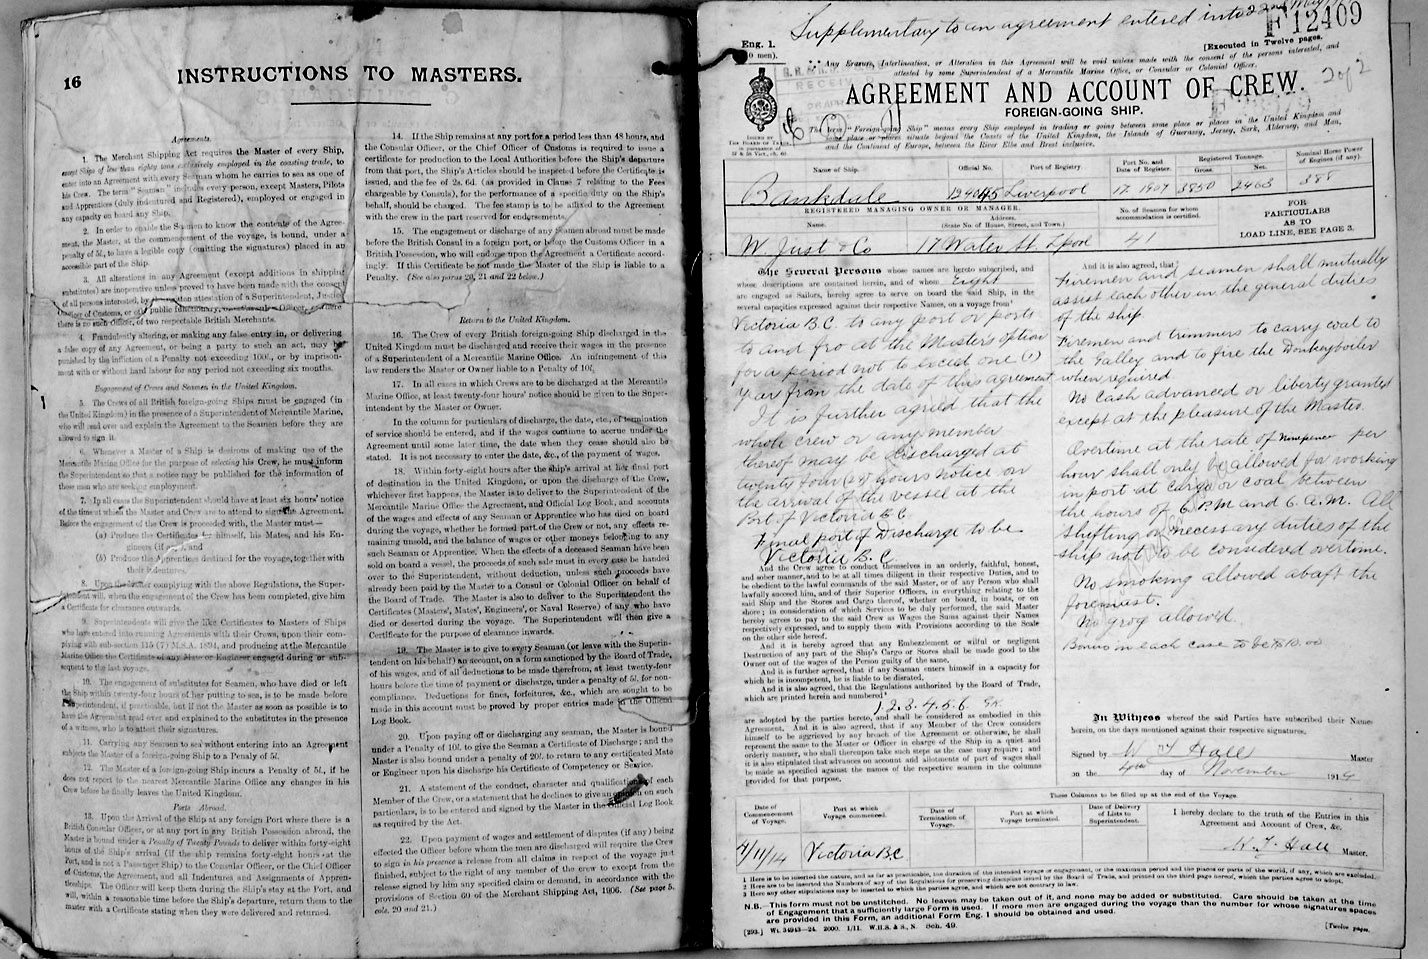 16
INSTRUCTIONS TO MASTERS.
Agreements.
1. The Merchant Shipping Act requires the Master of every Ship,
except Ships of less than eighty tons exclusively employed in the coasting trade, to
enter into an Agreement with every Seaman whom he carries to sea as one of
his Crew. The term "Seaman" includes every person, except Masters, Pilots
and Apprentices (duly indentured and Registered), employed or engaged in
any capacity on board any Ship.
2. In order to enable the Seamen to know the contents of the Agree-
ment, the Master, at the commencement of the voyage, is bound, under a
penalty of 5l., to have a legible copy (omitting the signatures) placed in an
accessible part of the Ship.
3. All alterations in any Agreement (except additions in shipping
substitutes) are inoperative unless proved to have been made with the consent
of all persons interested, by attestation of a Superintendent, Justice
Officer of Customs, or other public functionary,
there is no such Officer, of two respectable British Merchants.
4. Fraudulently altering, or making any false entry in, or delivering
a false copy of any Agreement, or being a party to such an act, may be
punished by the infliction of a Penalty not exceeding 100l., or by imprison-
ment with or without hard labour for any period not exceeding six months.
Engagement of Crews and Seamen in the United Kingdom.
5. The Crews of all British foreign-going Ships must be engaged (in
the United Kingdom) in the presence of a Superintendent of Mercantile Marine,
who will read over and explain the Agreement to the Seamen before they are
allowed to sign it.
6. Whenever a Master of a Ship is desirous of making use of the
Mercantile Marine Office for the purpose of selecting his Crew, he must inform
the Superintendent so that a notice may be published for the information of
these men who are seeking employment.
7. In all cases the Superintendent should have at least six hours' notice
of the time at which the Master and Crew are to attend to sign the Agreement.
Before the engagement of the Crew is proceeded with, the Master must—
(a) Produce the Certificates for himself, his Mates, and his En-
gineers (if any), and
(b) Produce the Apprentices destined for the voyage, together with
their indentures.
8. Upon the Master complying with the above Regulations, the Super-
intendent will, when the engagement of the Crew has been completed, give him
a Certificate for clearance outwards.
9. Superintendents will give the like Certificates to Masters of Ships
who have entered into running Agreements with their Crews, upon their com-
plying with sub-section 115 (7) M.S.A. 1894, and producing at the Mercantile
Marine Office the Certificate of any Mate or Engineer engaged during or sub-
sequent to the last voyage.
10. The engagement of substitutes for Seamen, who have died or left
the Ship within twenty-four hours of her putting to sea, is to be made before
the Superintendent, if practicable, but if not the Master as soon as possible is to
have the Agreement read over and explained to the substitutes in the presence
of a witness, who is to attest their signatures.
11. Carrying any Seamen to sea without entering into an Agreement
subjects the Master of a foreign-going Ship to a Penaly of 5l.
12. The Master of a foreign-going Ship incurs a Penalty of 5l., if he
does not report to the nearest Mercantile Marine Office any changes in his
Crew before he finally leaves the United Kingdom.
Ports Abroad.
13. Upon the Arrival of the Ship at any foreign Port where there is a
British Consular Officer, or at any port in any British Possession abroad, the
Master is bound under a Penalty of Twenty Pounds to deliver within forty-eight
hours of the Ship's arrival (if the ship remains forty-eight hours at the
Port, and is not a Passenger Ship) to the Consular Officer, or the Chief Officer
of Customs, the Agreement, and all Indentures and Assignments of Appren-
ticeships. The Officer will keep them during the Ship's stay at the Port, and
will, within a reasonable time before the Ship's departure, return them to the
master with a Certificate stating when they were delivered and returned.
14. If the Ship remains at any port for a period less than 48 hours, and
the Consular Officer, or the Chief Officer of Customs is required to issue a
certificate for production to the Local Authorities before the Ship's departure
from that port, the Ship's Articles should be inspected before the Certificate is
issued, and the fee of 2s. 6d. (as provided in Clause 7 relating to the Fees
chargeable by Consuls), for the performance of a specific duty on the Ship's
behalf, should be charged. The fee stamp is to be affixed to the Agreement
with the crew in the part reserved for endorsements.
15. The engagement or discharge of any Seamen abroad must be made
before the British Consul in a foreign port, or before the Customs Officer in a
British Possession, who will endorse upon the Agreement a Certificate accord-
ingly. If this Certificate be not made the Master of the Ship is liable to a
Penalty. (See also paras 20, 21 and 22 below.)
Return to the United Kingdom.
16. The Crew of every British foreign-going Ship discharged in the
United Kingdom must be discharged and receive their wages in the presence
of a Superintendent of a Mercantile Marine Office. An infringement of this
law renders the Master or Owner liable to a Penalty of 10l.
17. In all cases in which Crews are to be discharged at the Mercantile
Marine Office, at least twenty-four hours' notice should be given to the Super-
intendent by the Master or Owner.
In the column for particulars of discharge, the date, etc., of termination
of service should be entered, and if the wages continue to accrue under the
Agreement until some later time, the date when they cease should also be
stated. It is not necessary to enter the date, &c., of the payment of wages.
18. Within forty-eight hours after the ship's arrival at her final port
of destination in the United Kingdom, or upon the discharge of the Crew,
whichever first happens, the Master is to deliver to the Superintendent of the
Mercantile Marine Office the Agreement, and Official Log Book, and accounts
of the wages and effects of any Seaman or Apprentice who has died on board
during the voyage, whether he formed part of the Crew or not, any effects re-
maining unsold, and the balance of wages or other moneys belonging to any
such Seaman or Apprentice. When the effects of a deceased Seaman have been
sold on board a vessel, the proceeds of such sale must in every case be handed
over to the Superintendent, without deduction, unless such proceeds have
already been paid by the Master to a Consul or Colonial Officer on behalf of
the Board of Trade. The Master is also to deliver to the Superintendent the
Certificates (Masters', Mates', Engineers', or Naval Reserve) of any who have
died or deserted during the voyage. The Superintendent will then give a
Certificate for the purpose of clearance inwards.
19. The Master is to give to every Seaman (or leave with the Superin-
tendent on his behalf) an account, on a form sanctioned by the Board of Trade,
of his wages, and of all deductions to be made therefrom, at least twenty-four
hours before the time of payment or discharge, under a penalty of 5l. for non-
compliance. Deductions for fines, forfeitures, &c., which are sought to be
made in this account must be proved by proper entries made in the Official
Log Book.
20. Upon paying off or discharging any seaman, the Master is bound
under a Penalty of 10l. to give the Seaman a Certificate of Discharge; and the
Master is also bound under a penalty of 20l. to return to any certificated Mate
or Engineer upon his discharge his Certificate of Competency or Service.
21. A statement of the conduct, character and qualifications of each
Member of the Crew, or a statement that he declines to give an opinion on such
particulars, is to be entered and signed by the Master in the Official Log Book
as required by the Act.
22. Upon payment of wages and settlement of disputes (if any) being
effected the Officer before whom the men are discharged will require the Crew
to sign in his presence a release from all claims in respect of the voyage just
finished, subject to the right of any member of the crew to except from the
release signed by him any specified claim or demand, in accordance with the
provisions of Section 60 of the Merchant Shipping Act, 1906. (See page 5,
cols. 20 and 21.)
Supplementary to an agreement entered into 22nd May
F12409
Eng. 1.
[Executed in Twelve pages.
Any Erasure, Interlineation, or Alteration in this Agreement will be void unless made with the consent of the persons interested, and
attested by some Superintendent of a Mercantile Marine Office, or Consular or Colonial Officer.
2 of 2
AGREEMENT AND ACCOUNT OF CREW.
FOREIGN-GOING SHIP.
ISSUED BY
THE BOARD OF TRADE
The term "Foreign-going Ship" means every Ship employed in trading or going between some place or places in the United Kingdom and
some place or places situate beyond the Coasts of the United Kingdom, the Islands of Guernsey, Jersey, Sark, Alderney, and Man,
and the Continent of Europe, between the River Elbe and Brest inclusive.
Name of Ship. Official No. Port of Registry Port No. and Date of Register. Registered Tonnage. Gross. Net. Nominal Horse Power of Engines (if any).
Bankdale 124045 Liverpool 17. 1907 3850 2463 388
REGISTERED MANAGING OWNER OR MANAGER.
Name. Address. (State No. of House, Street, and Town.) No. of Seamen for whom accommodation is certified.
FOR PARTICULARS AS TO LOAD LINE, SEE PAGE 3.
W. Just & Co 17 Water St. Lpool 41
The Several Persons whose names are hereto subscribed, and
whose descriptions are contained herein, and of whom Eight
are engaged as Sailors, hereby agree to serve on board the said Ship, in the
several capacities expressed against their respective Names, on a voyage from
Victoria B.C. to any port or ports
to and fro at the Masters option
for a period not to exceed one (1)
year from the date of this agreement
It is further agreed that the
whole crew or any member
thereof may be discharged at
twenty four (24) hours notice on
the arrival of the vessel at the
Port of Victoria B.C.
Final port of Discharge to be
Victoria B.C
And the Crew agree to conduct themselves in an orderly, faithful, honest,
and sober manner, and to be at all times diligent in their respective Duties, and to
be obedient to the lawful commands of the said Master, or of any Person who shall
lawfully succeed him, and of their Superior Officers, in everything relating to the
said Ship and the Stores and Cargo thereof, whether on board, in boats, or on
shore; in consideration of which Services to be duly performed, the said Master
hereby agrees to pay to the said Crew as Wages the Sums against their Names
respectively expressed, and to supply them with Provisions according to the Scale
on the other side hereof.
And it is hereby agreed that any Embezzlement or wilful or negligent
Destruction of any part of the Ship's Cargo or Stores shall be made good to the
Owner out of the wages of the Person guilty of the same.
And it is further agreed, that if any Seaman enters himself in a capacity for
which he is incompetent, he is liable to be disrated.
And it is also agreed, that the Regulations authorized by the Board of Trade,
which are printed herein and numbered
1. 2. 3. 4. 5. 6.
are adopted by the parties hereto, and shall be considered as embodied in this
Agreement. And it is also agreed, that if any Member of the Crew considers
himself to be aggrieved by any breach of the Agreement or otherwise, he shall
represent the same to the Master or Officer in charge of the Ship in a quiet and
orderly manner, who shall thereupon take such steps as the case may require; and
it is also stipulated that advances on account and allotments of part of wages shall
be made as specified against the names of the respective seamen in the columns
provided for that purpose.
And it is also agreed, that
Firemen and seamen shall mutually
assist each other in the general duties
of the ship
Firemen and trimmers to carry coal to
the Galley and to fire the Donkeyboiler
when required
No cash advanced or liberty granted
except at the pleasure of the Master
Overtime at the rate of Ninepence per
hour shall only be allowed for working
in port at cargo or coal between
the hours of 6 P.M and 6 A.M. All
shifting or necessary duties of the
ship not to be considered overtime.
No smoking allowed abaft the
foremast.
No grog allowed
Bonus in each case to be $10.00
In Witness whereof the said Parties have subscribed their Names
herein, on the days mentioned against their respective signatures.
Signed by W T Hall Master
on the 4th day of November 1914
These Columns to be filled up at the end of the Voyage.
Date of Commencement of Voyage. Port at which Voyage commenced. Date of Termination of Voyage. Port at which Voyage terminated. Date of Delivery of Lists to Superintendent. I hereby declare to the truth of the Entries in this Agreement and Account of Crew, &c.
4/11/14 Victoria B.C W T Hall Master.
1 Here is to be inserted the nature, and as far as practicable, the duration of the intended voyage or engagement, or the maximum period and the places or parts of the world, if any, which are excluded.
2 Here are to be inserted the Numbers of any of the Regulations for preserving discipline issued by the Board of Trade, and printed on the third page hereof, which the parties agree to adopt.
3 Here any other stipulations may be inserted to which the parties agree, and which are not contrary to law.
N.B.—This form must not be unstitched. No leaves may be taken out of it, and none may be added or substituted. Care should be taken at the time
of Engagement that a sufficiently large Form is used. If more men are engaged during the voyage than the number for whose signatures spaces
are provided in this Form, an additional Form Eng. 1 should be obtained and used.
[293.] Wt. 34943—24. 2000. 1/11. W.H.S. & S., N. Sch. 49.
[Twelve pages.